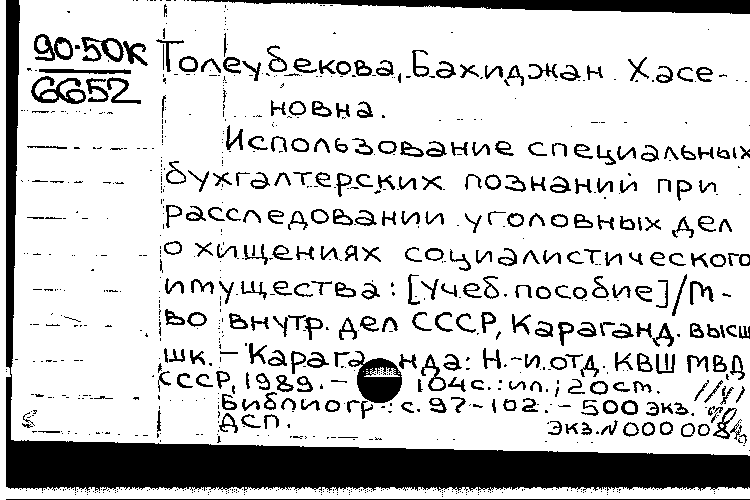 90-50К Толеубекова, Бахиджан Хасе-
6652 новна.
Использование специальных
бухгалтерских познаний при
расследовании уголовных дел
о хищениях социалистического
имущества: [Учеб. пособие]/М-
во внутр. дел СССР, Караганд. высш.
шк. – Карага нда: Н.-и.отд. КВШ МВД
СССР, 1989. – 104с.: ил.; 20см.
Библиогр.: с. 97-102. – 500 экз.
ДСП. Экз.N 000 008